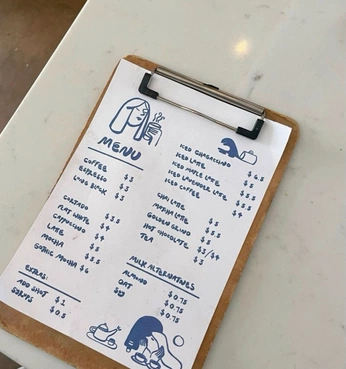 MENU
COFFEE $3
ESPRESSO $3
LONG BLACK $3
CORTADO $3.5
FLAT WHITE $4
CAPPUCCINO $4
LATTE
MOCHA
GOTHIC MOCHA $6
EXTRAS:
ADD SHOT $1
SYRUPS $0.5
ICED $6.5
ICED LATTE
ICED MAPLE LATTE
ICED LAVENDER LATTE
ICED COFFEE $4
CHAI LATTE
MATCHA LATTE
GOLDEN GRIND
HOT CHOCOLATE $3/$4
TEA $3
MILK ALTERNATIVES
ALMOND $0.75
OAT $0.75
SOY $0.75